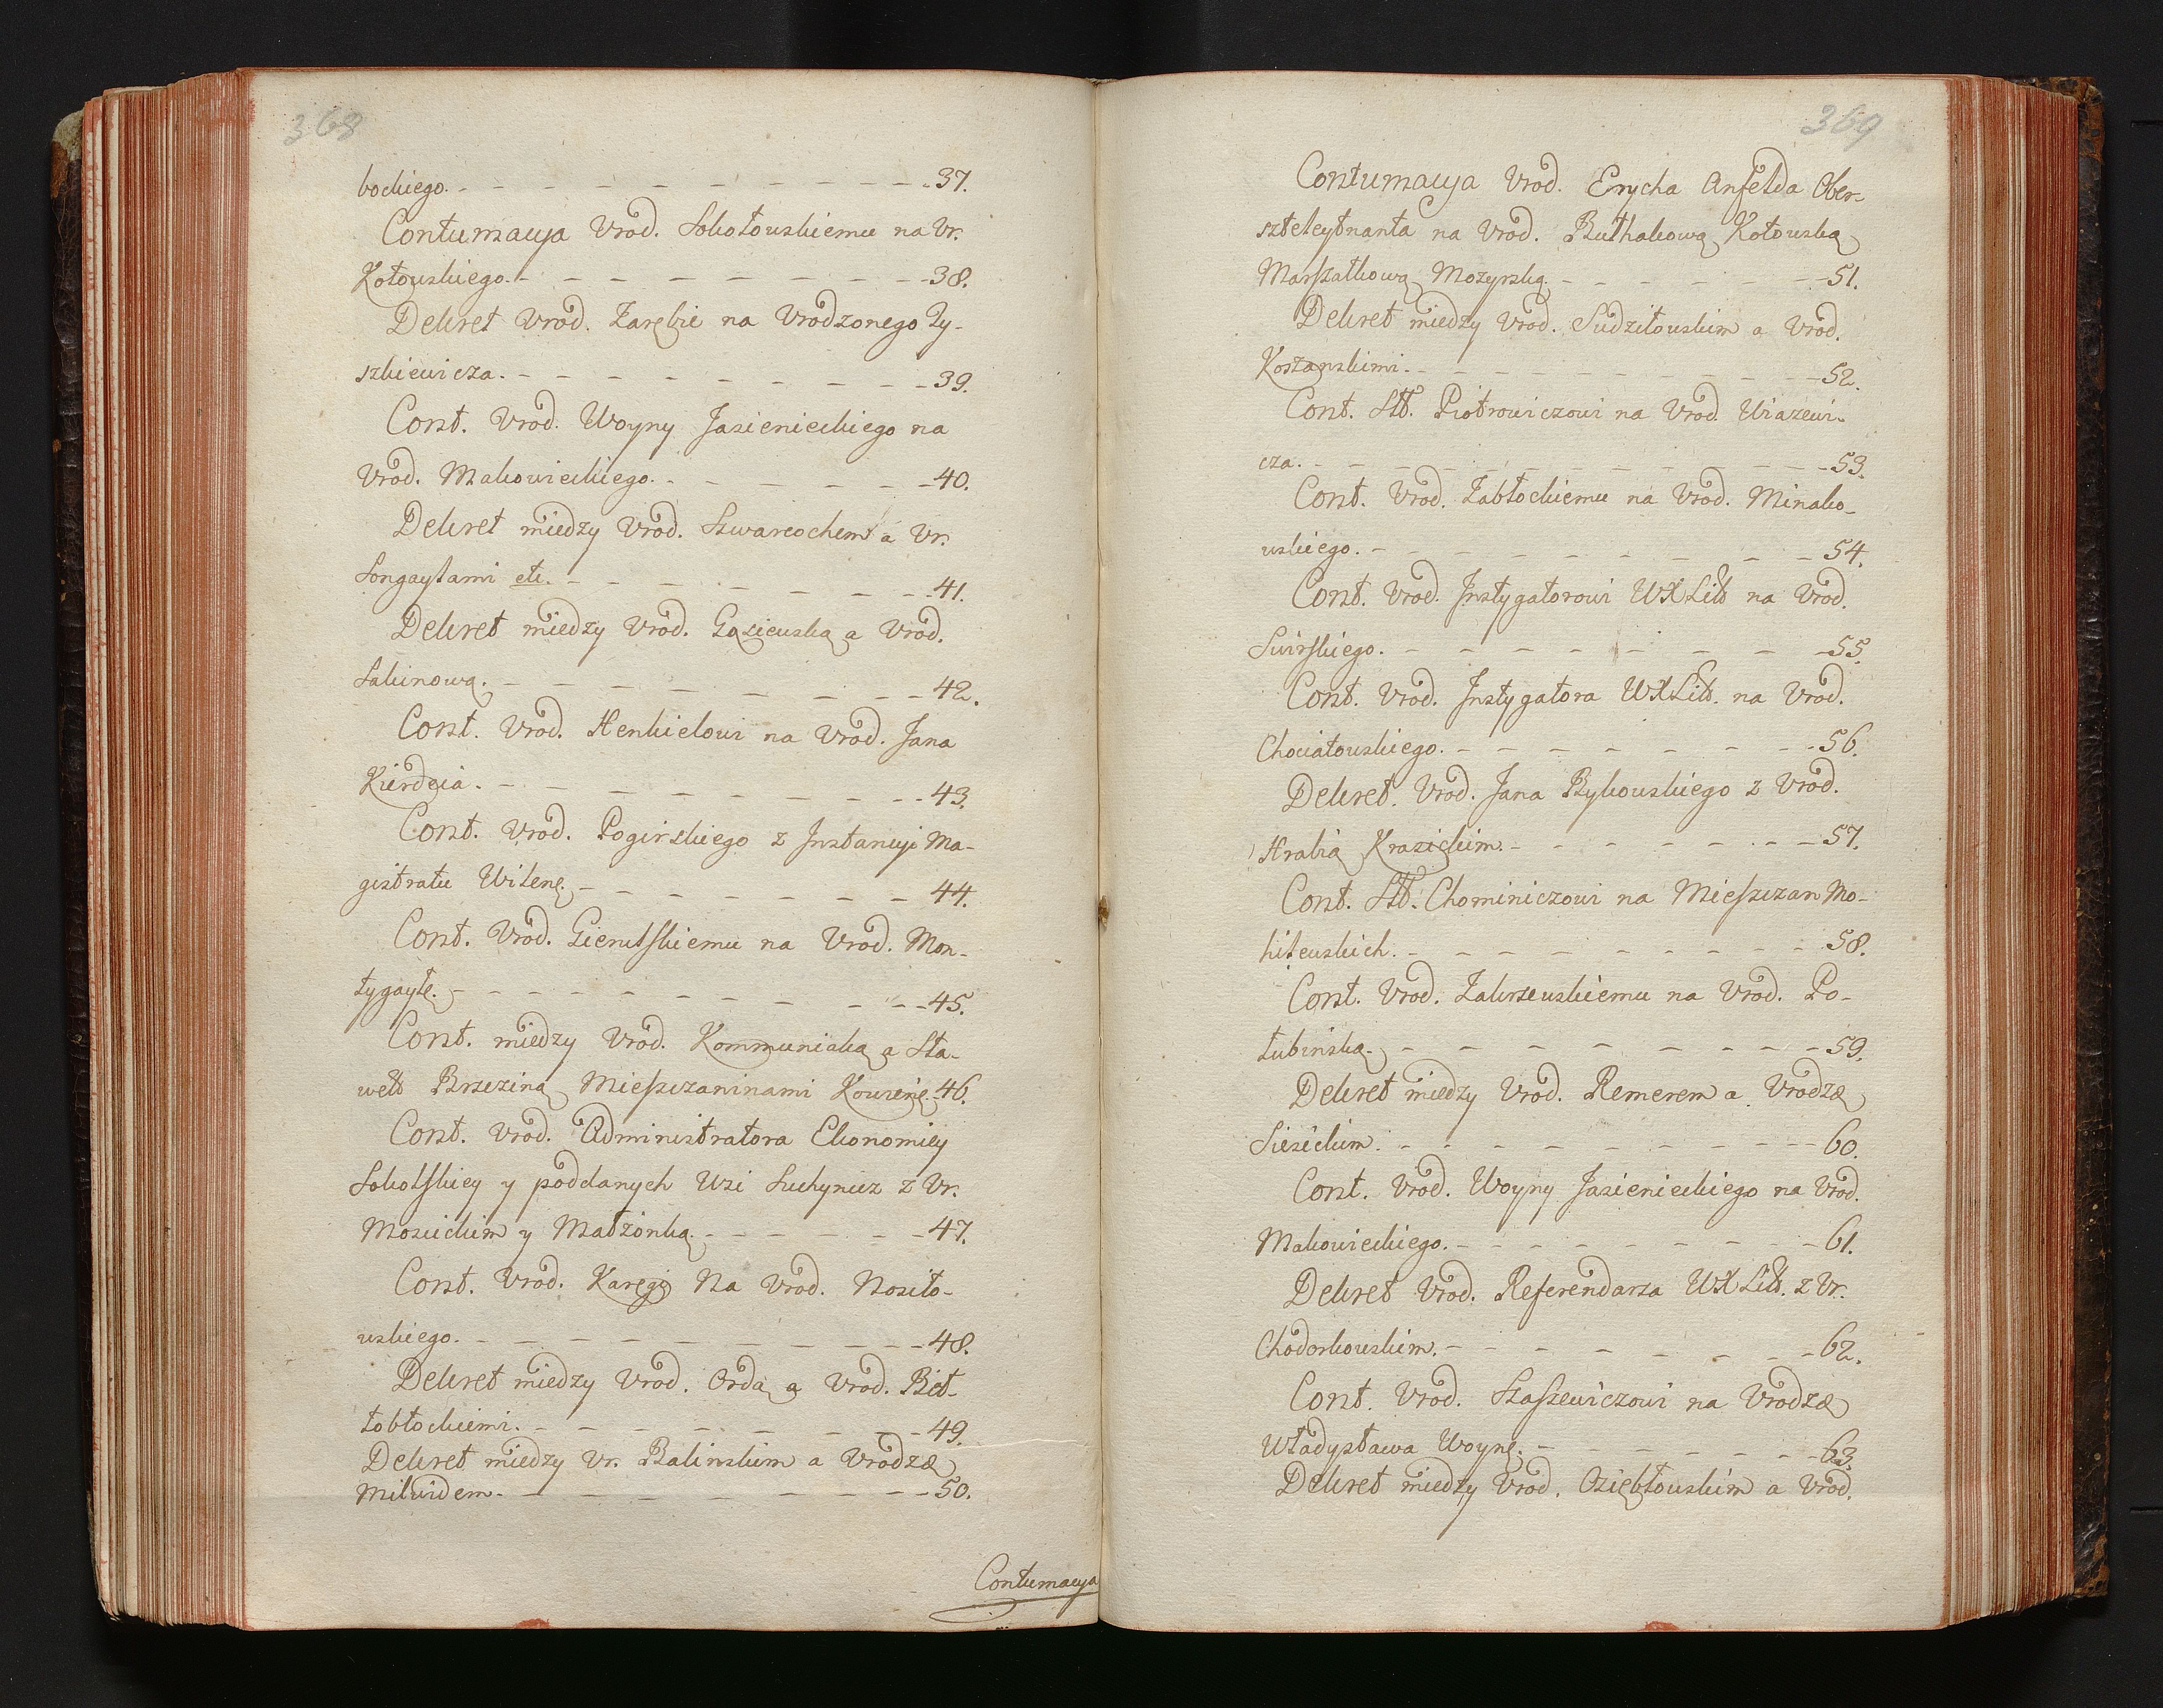 368
bockiego. - - - - - - - - - - 37.
Contumacya Vrod. Sokołowskiemu na Vr.
Kołowskiego. - - - - - - - - 38.
Dekret Vrod. Zarębie na Vrodzonego Ty-
szkiewicza. - - - - - - - - 39.
Cont. Vrod. Woyny Jasienieckiego na
Vrod. Makowieckiego. - - - - - - 40.
Dekret miedzy Vrod. Szwarcochem a Vr.
Songaylami etc. - - - - - - - 41.
Dekret miedzy Vrod. Gąsiewską a Vrod.
Sakinową. - - - - - - - - 42.
Cont. Vrod. Henkielowi na Vrod. Jana
Kierdeia. - - - - - - - - - 43.
Cont. Vrod. Pogirskiego z Jnstancyi Ma-
gistratu Wilenę. - - - - - - 44.
Cont. Vrod. Gierutskiemu na Vrod. Mon-
tygayłę. - - - - - - - - - - 45.
Cont. miedzy Vrod. Kommuniaką a Sta-
wett Brzeziną Mieszczaninami Kowieńę. 46.
Cont. Vrod. Administratora Ekonomiey
Sokolskiey y poddanych Wsi Suchynicz z Vr.
Mosiickim y Małżonką. - - - - - - 47.
Cont. Vrod. Karęgi Na Vrod. Nosiło-
wskiego. - - - - - - - - - 48.
Dekret miedzy Vrod. Ordą a Vrod. Bił-
łobłockiemi. - - - - - - - - 49.
Dekret miedzy Vr. Balinskim a Vrodzę
Milwidem. - - - - - - - - - 50.
Contumacya
369
Contumacya Vrod. Erycha Anfelda Ober-
sztcleytnanta na Vrod. Buthakową Kotowską
Marszałkową Mozyrską. - - - - - - 51.
Dekret miedzy Vrod. Sudziłowskim a Vrod.
Kostanskimi. - - - - - - - - - 52.
Cont. Stt. Piotrowiczowi na Vrod. Wiazewi-
cza. - - - - - - - - - - - 53.
Cont. Vrod. Zabłockiemu na Vrod. Minako-
wskiego. - - - - - - - - - 54.
Cont. Vrod. Jnstygatorowi WXLitt na Vrod.
Swirskiego. - - - - - - - - 55.
Cont. Vrod. Jnstygatora WXLitt. na Vrod.
Chociatowskiego. - - - - - - - - 56.
Dekret. Vrod. Jana Bykowskiego z Vrod.
Hrabią Krasickim. - - - - - - - 57.
Cont. Stt. Chominiczowi na Mieszczan Mo-
hilewskich. - - - - - - - - 58.
Cont. Vrod. Zakrzewskiemu na Vrod. Po-
łubińską. - - - - - - - - - 59.
Dekret miedzy Vrod. Remerem a Vrodzę
Siesickim. - - - - - - - - 60.
Cont. Vrod. Woyny Jasienieckiego na Vrod.
Makowieckiego. - - - - - - - 61.
Dekret Vrod. Referendarza WXLitt. z Vr.
Chodorkowskim. - - - - - - - - 62.
Cont. Vrod. Staszewiczowi na Vrodzę
Władysława Woynę. - - - - - - - 63.
Dekret miedzy Vrod. Osiębłowskim a Vrod.